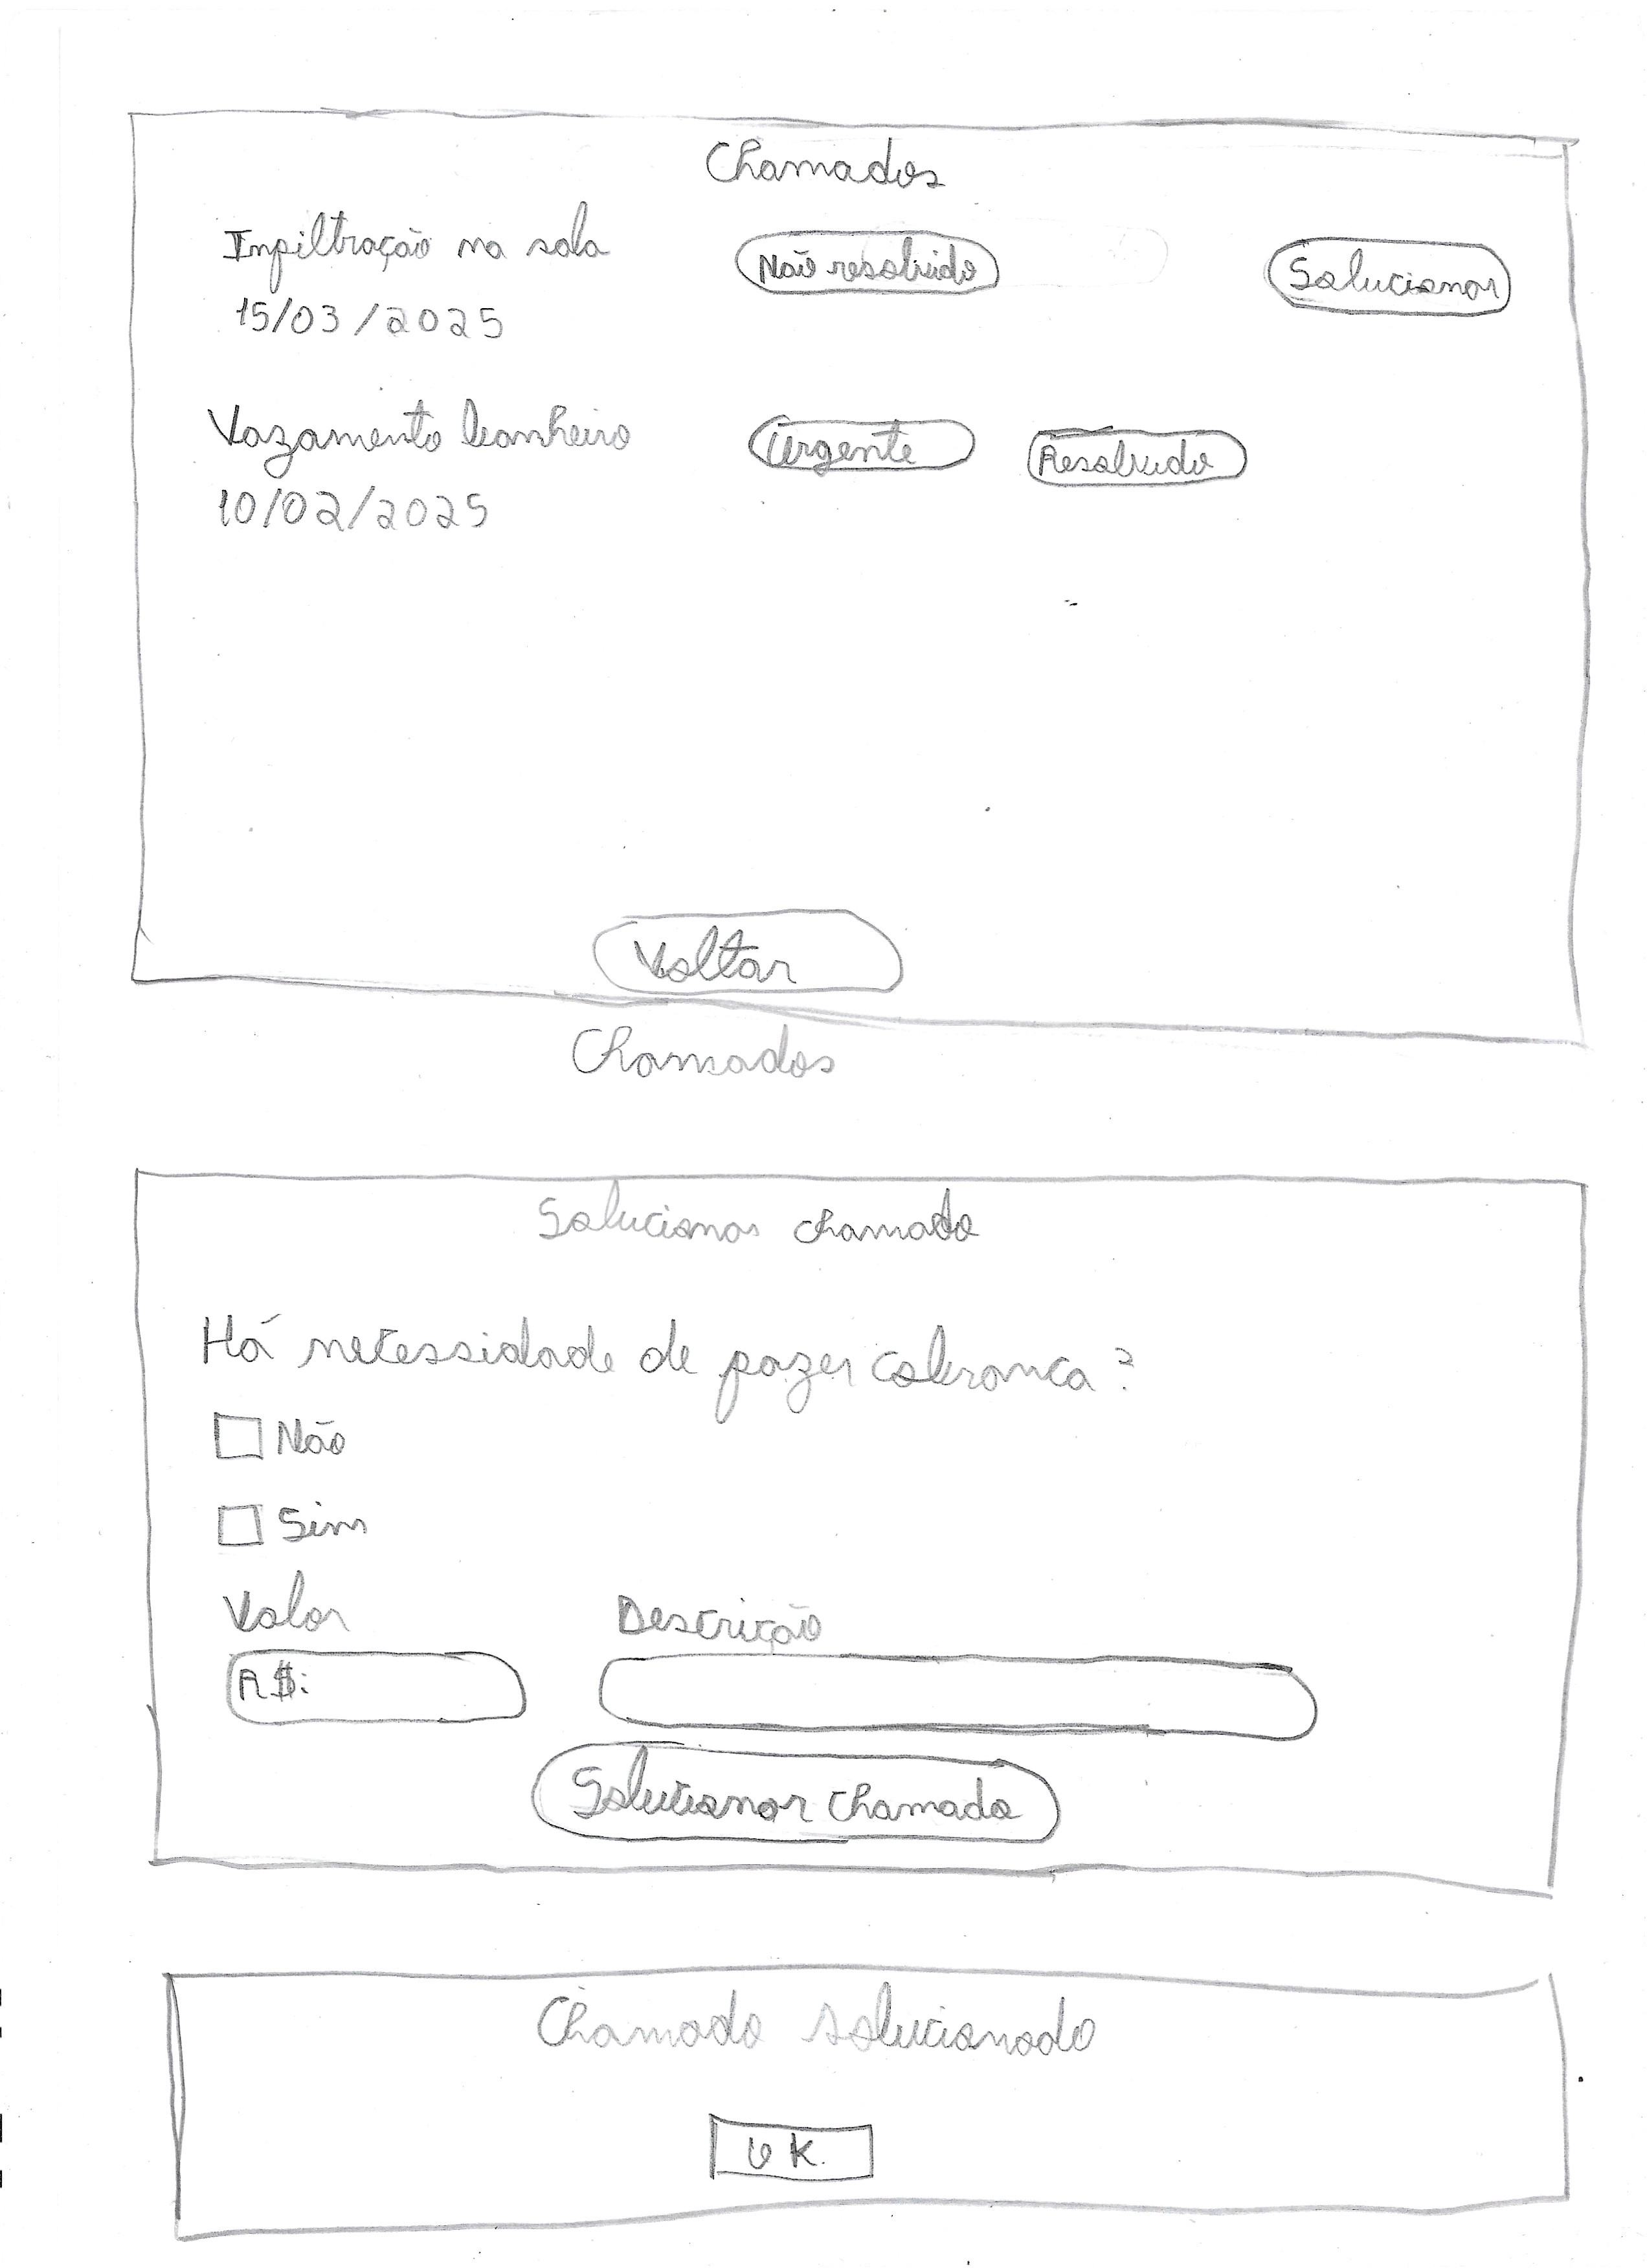 Chamados
Infiltração na sala
Não resolvido
Solucionar
15/03/2025
Vazamento banheiro
Urgente
Resolvido
10/02/2025
Voltar
Chamados
Solucionar chamado
Há necessidade de fazer cobranca?
Não
Sim
Valor
Descrição
R$:
Solucionar chamado
Chamado solucionado
OK.